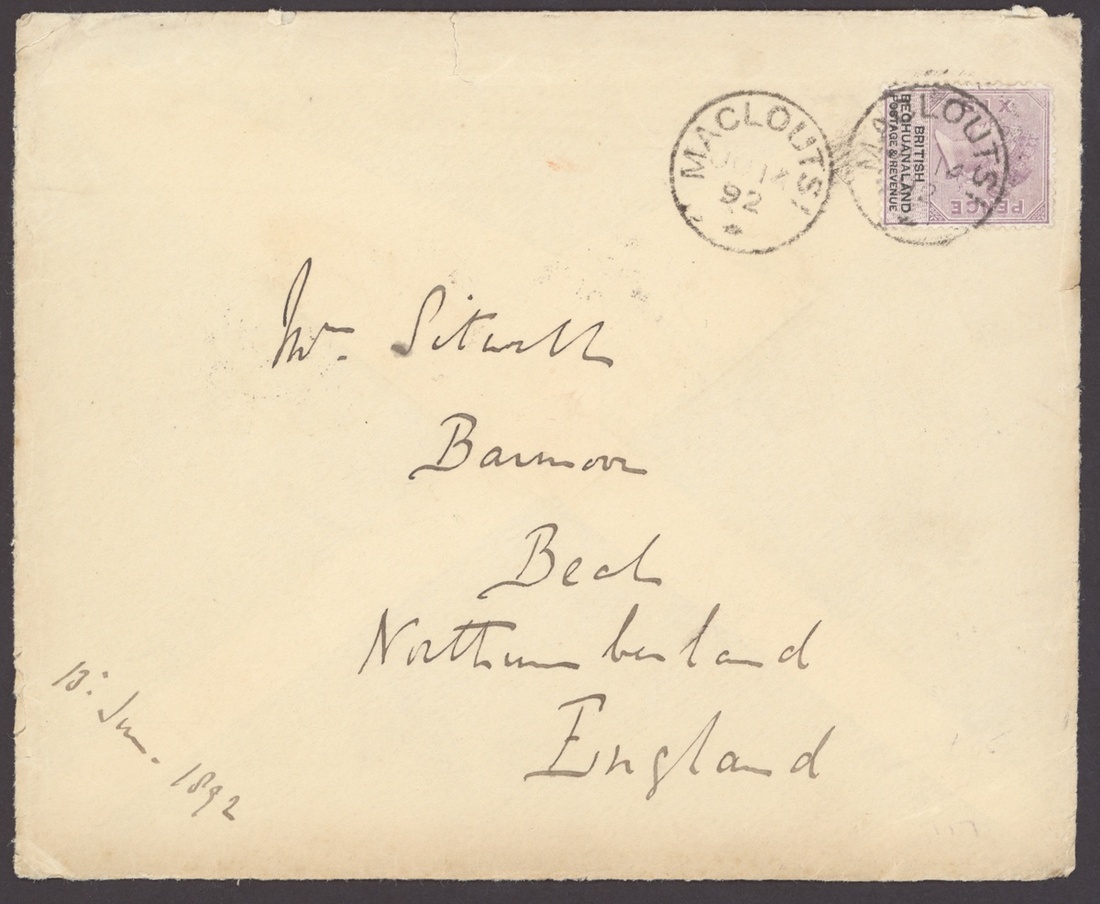 MACLOUTSI
JU 14
92
MACLOUTSI
14
92
BRITISH
BECHUANALAND
POSTAGE & REVENUE
PENCE
Sitwell
Barmoor
Beal
Northumberland
England
13: Jun. 1892